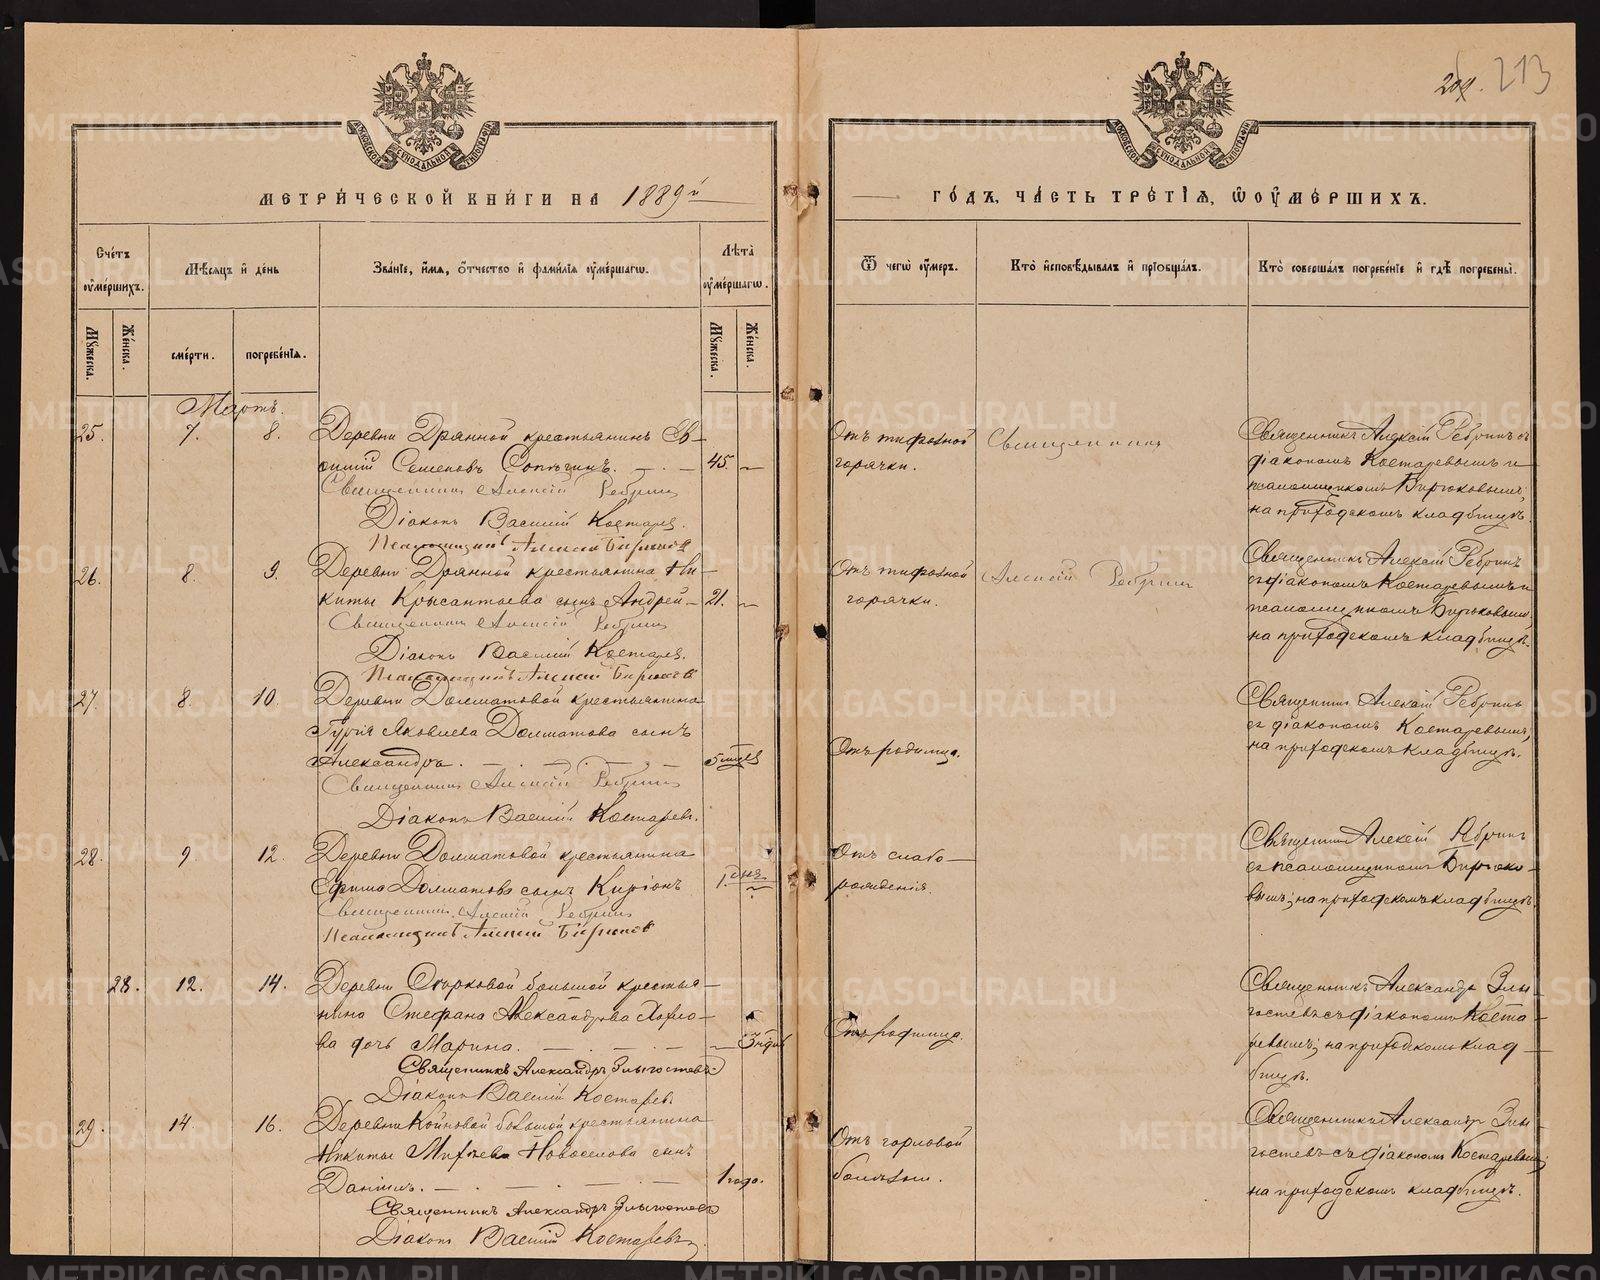 209. 213
МОСКОВСКОЙ СѴНОДАЛЬНОЙ ТИПОГРАФІИ
МЕТРИ́ЧЕСКОЙ КНИ́ГИ НА 1889й
МОСКОВСКОЙ СѴНОДАЛЬНОЙ ТИПОГРАФІИ
ГО́ДЪ, ЧА́СТЬ ТРЕ́ТІѦ, Ѡ ОУ҆МЕ́РШИХЪ.
Сче́тъ оу҆ме́ршихъ.
Мѣ́сѧцъ и҆ де́нь
Зва́ніе, и҆́мѧ, ѻ҆́тчество и҆ фами́ліѧ оу҆ме́ршагѡ.
Лѣ́та оу҆ме́ршагѡ.
Ѿ чегѡ̀ оу҆́меръ.
Кто̀ и҆сповѣ́дывалъ и҆ прїѡбща́лъ.
Кто̀ соверша́лъ погребе́ніе и҆ гдѣ̀ погребены̀.
Мꙋ́жеска.
Же́нска.
сме́рти.
погребе́ніѧ.
Мꙋ́жеска.
Же́нска.
Мартъ.
25. 7. 8. Деревни Дрянной крестьянинъ
Семеновъ 45.
Священникъ Алексій Ребринъ
Діаконъ Василій Костарев.
Псаломщикъ Алексій Бирюков
Отъ тифозной
горячки.
Священникъ
Священникъ Алексій Ребринъ съ
діакономъ Костаревымъ и
псаломщикомъ Бирюковымъ;
на приходскомъ кладбищѣ.
26. 8. 9. Деревни Дрянной крестьянина Ни-
киты сынъ Андрей 21.
Священникъ Алексій Ребринъ
Діаконъ Василій Костарев.
Псаломщикъ Алексій Бирюков
Отъ тифозной
горячки.
Алексій Ребринъ
Священникъ Алексій Ребринъ
с діакономъ Костаревымъ и
псаломщикомъ Бирюковымъ,
на приходскомъ кладбищѣ.
27. 8. 10. Деревни Долматовой крестьянина
Гурія Яковлева Долматова сынъ
Александръ.
Священникъ Алексій Ребринъ
Діаконъ Василій Костаревъ.
Отъ родимца.
Священникъ Алексій Ребринъ
съ діакономъ Костаревымъ,
на приходскомъ кладбищѣ.
28. 9. 12. Деревни Долматовой крестьянина
Ефима Долматова сынъ Киріонъ 1. дня
Священникъ Алексій Ребринъ
Псаломщикъ Алексій Бирюков
Отъ слабо-
рожденія.
Священникъ Алексій Ребринъ
съ псаломщикомъ Бирюко-
вымъ; на приходскомъ кладбищѣ.
28. 12. 14. Деревни большой крестья-
нина Стефана Александрова
дочь Марина. 3 нѣд.
Священникъ Александръ Злыгостевъ
Діаконъ Василій Костарев.
Отъ родимца.
Священникъ Александръ Злы-
гостевъ съ діакономъ Коста-
ревымъ; на приходскомъ клад-
бищѣ.
29. 14. 16. Деревни Койновой большой крестьянина
Никиты Новоселова сынъ
Даніилъ. 1 года.
Священникъ Александръ Злыгостевъ
Діаконъ Василій Костаревъ
Отъ горловой
болѣзни.
Священникъ Александръ Злы-
гостевъ съ діакономъ Костаревымъ;
на приходскомъ кладбищѣ.
METRIKI.GASO-URAL.RU